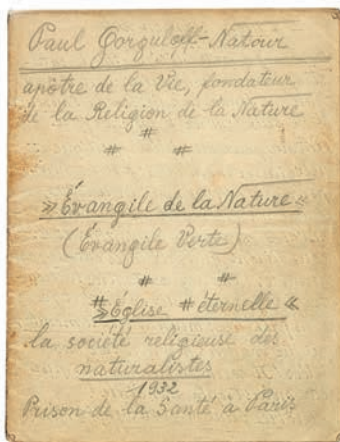 Paul Gorguloff-Natour
apôtre de la Vie, fondateur
de la Religion de la Nature
#
# #
»Évangile de la Nature«
(Évangile Verte)
# #
# »Église # éternelle «
la société religieuse des
naturalistes
1932
Prison de la Santé à Paris